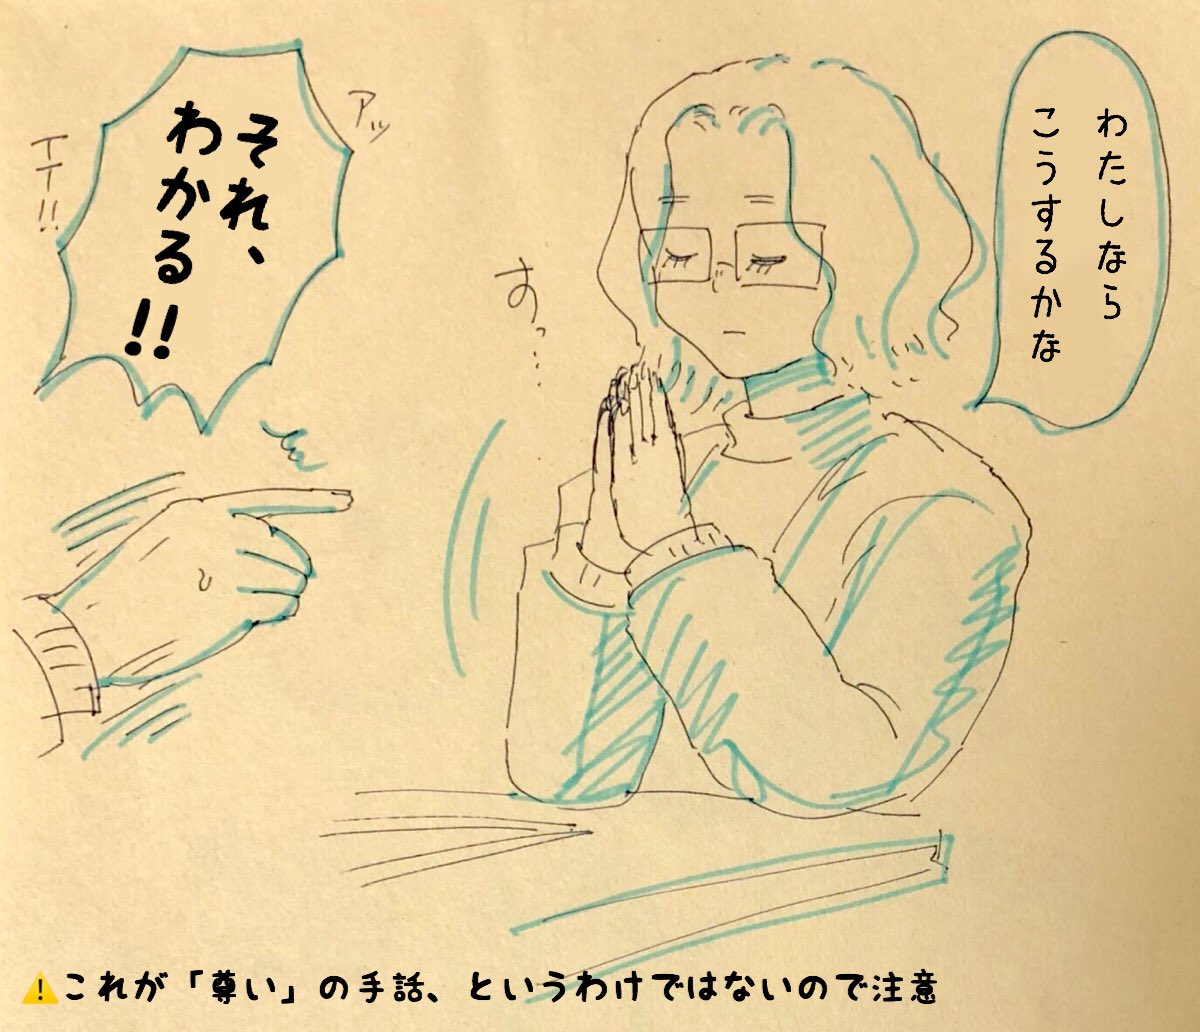 わたしなら
こうするかな
すっ…
アッ
それ、
わかる!!
イイ!!
⚠️これが「尊い」の手話、というわけではないので注意